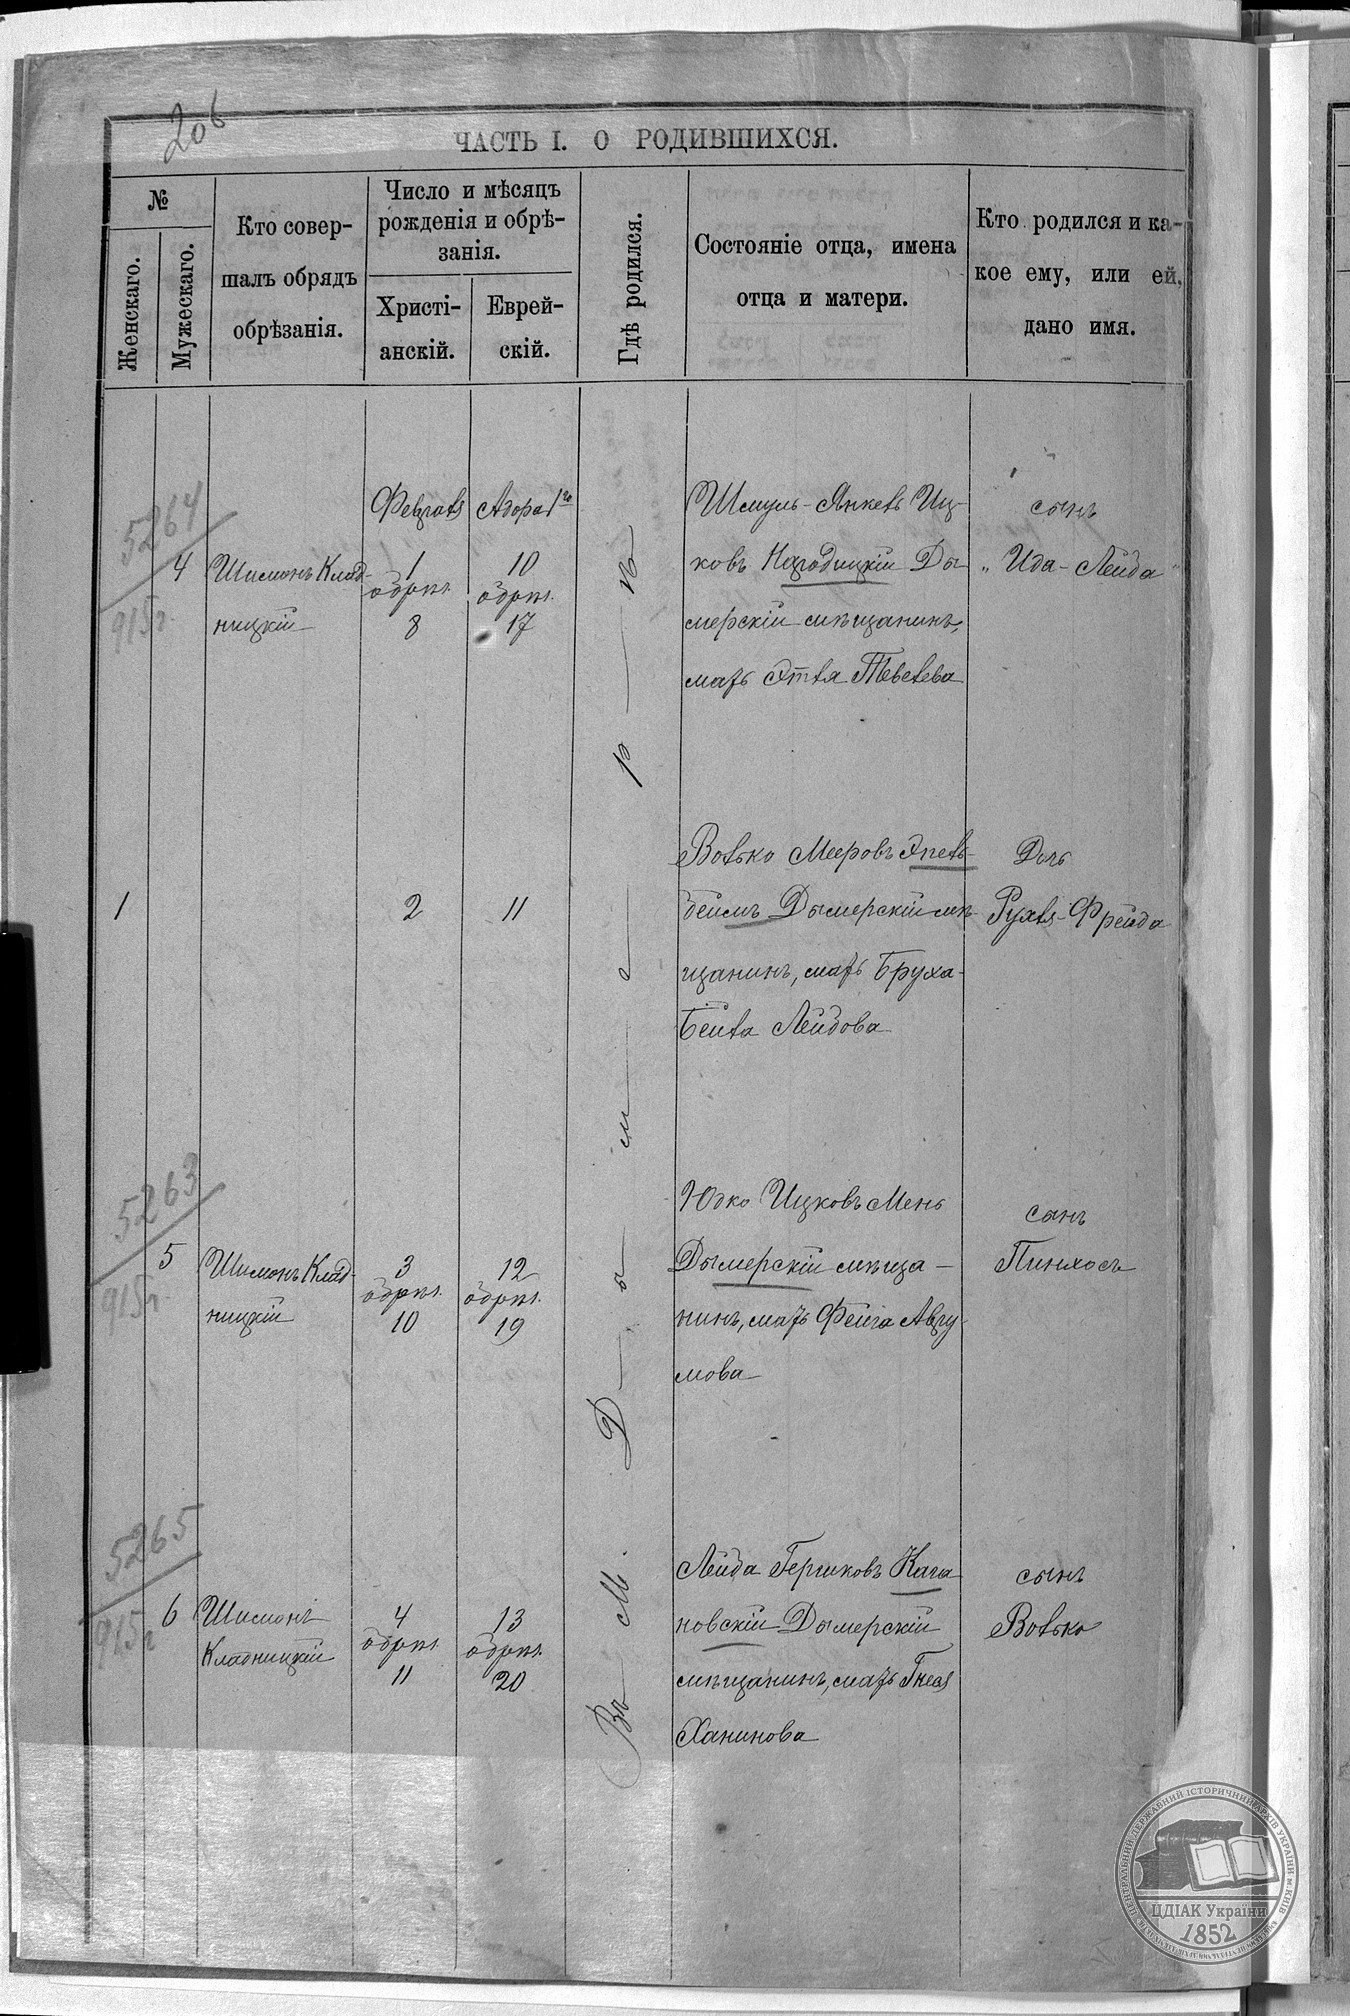 206
ЧАСТЬ I. О РОДИВШИХСЯ.
№
Женскаго.
Мужескаго.
Кто совер-
шалъ обрядъ
обрѣзанія.
Число и мѣсяцъ
рожденія и обрѣ-
занія.
Христі-
анскій.
Еврей-
скій.
Гдѣ родился.
Состояніе отца, имена
отца и матери.
Кто родился и ка-
кое ему, или ей,
дано имя.
Въ М. Дымерѣ
5264
915 г.
4
Шимонъ Клад-
ницкій
Февраль
1
обрѣз.
8
Адора 1го
10
обрѣз.
17
Шмуль-Янкель Иц-
ковъ Народицкій Ды-
мерскій мѣщанинъ,
мать Этля Тевелева
сынъ
Ида-Лейба
1
2
11
Волько Мееровъ Эпель-
беймъ Дымерскій мѣ-
щанинъ, мать Бруха-
Бейла Лейбова
Дочь
Рухля-Фрейда
5263
915 г.
5
Шимонъ Клад-
ницкій
3
обрѣз.
10
12
обрѣз.
19
Юдко Ицковъ Мень
Дымерскій мѣща-
нинъ, мать Фейга Авру-
мова
сынъ
Пинхосъ
5265
915 г
6
Шимонъ
Кладницкій
4
обрѣз.
11
13
обрѣз.
20
Лейба Гершковъ Кага
новскій Дымерскій
мѣщанинъ, мать Гнеся
Ханинова
сынъ
Волько
ЦЕНТРАЛЬНИЙ ДЕРЖАВНИЙ ІСТОРИЧНИЙ АРХІВ УКРАЇНИ м. КИЇВ
ЦДІАК України
1852